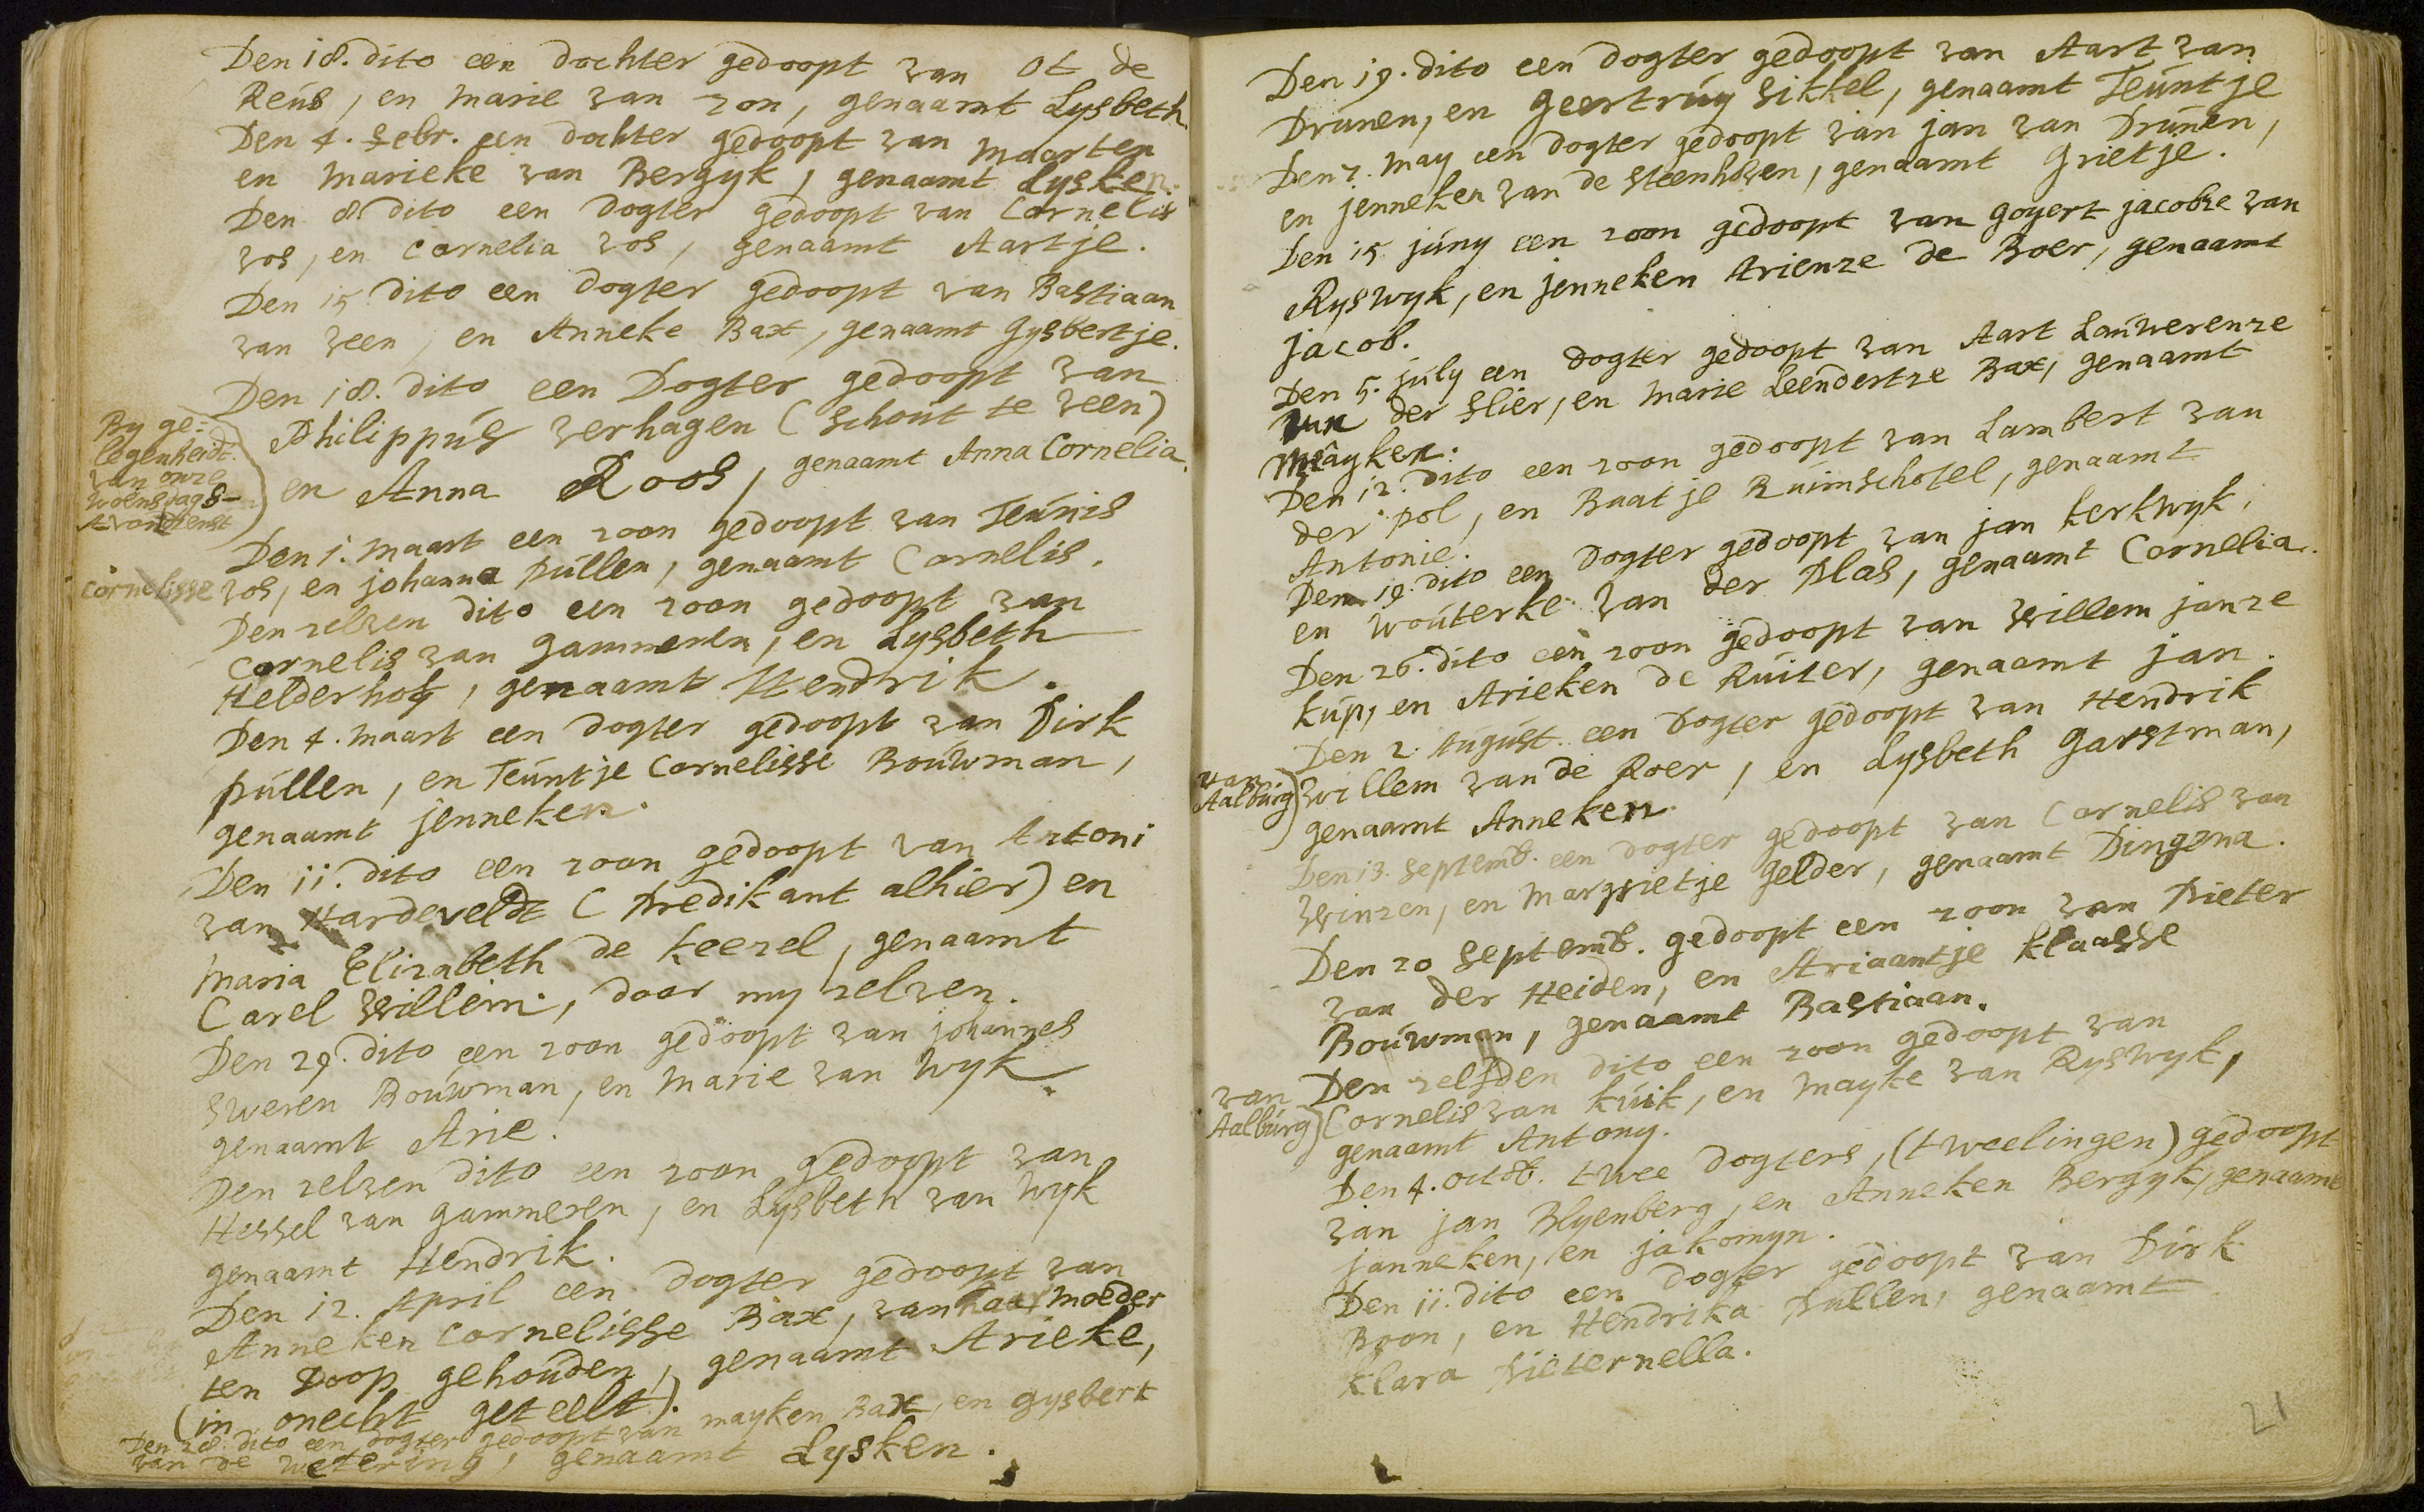 Den 18. dito een dochter gedoopt van Ot de
Reus, en Marie van zon, genaamt Lysbeth.
Den 4. Febr. een dochter gedoopt van Maarten
en Marieke van Bergyk, genaamt Lysken.
Den 8 dito een dogter gedoopt van Cornelis
vos, en Cornelia vos, genaamt Aartje.
Den 15 dito een dogter gedoopt van Bastiaan
van veen, en Anneke Bax, genaamt Gysbertje.
Den 18. dito een Dogter gedoopt van
Philippus verhagen (schout te veen)
By ge=
legenheidt
van onze
woensdags-
Avondienst
en Anna Roos, genaamt Anna Cornelia.
Den 1. Maart een zoon gedoopt van Teunis
Cornelisse vos, en johanna pullen, genaamt Cornelis.
Den zelven dito een zoon gedoopt van
Cornelis van gammeren, en Lysbeth
Helderhof, genaamt Hendrik.
Den 4. Maart een dogter gedoopt van Dirk
pullen, en Teuntje Cornelisse Bouwman,
genaamt jenneken.
Den 11. dito een zoon gedoopt van Antoni
van Hardeveldt (Predikant alhier) en
Maria Elizabeth de keezel, genaamt
Carel Willem, door my zelven.
Den 29. dito een zoon gedoopt van johannes
sweren Bouwman, en Marie van Wyk
genaamt Arie.
Den zelven dito een zoon gedoopt van
Hessel van gammeren, en Lysbeth van Wyk
genaamt Hendrik.
Den 12. April een dogter gedoopt van
Anneken Cornelisse Bax, van haar moeder
ten Doop gehouden, genaamt Arieke,
(in onecht geteelt).
Den 28. dito een dogter gedoopt van mayken Bax, en gysbert
van de wetering, genaamt Lysken.
Den 19. dito een dogter gedoopt van Aart van
Drunen, en geertruy sikkel, genaamt Teuntje
Den 7. May een dogter gedoopt van jan van Drunen,
en jenneken van de steenhoven, genaamt Grietje.
Den 15 juny een zoon gedoopt van goyert jacobze van
Ryswyk, en jenneken Arienze de Boer, genaamt
jacob.
Den 5. july een dogter gedoopt van Aart Lauwerenze
van der Slier, en Marie Leendertze Bax, genaamt
Mayken.
Den 12. dito een zoon gedoopt van Lambert van
der pol, en Baatje Ruimschotel, genaamt
Antonie.
Den 19. dito een dogter gedoopt van jan kerkwyk,
en wouterke van der Plas, genaamt Cornelia.
Den 26. dito een zoon gedoopt van Willem janze
kup, en Arieken de Ruiter, genaamt jan.
Den 2. August. een Dogter gedoopt van Hendrik
van
Aalburg) willem van de Roer, en Lysbeth Garstman,
genaamt Anneken.
Den 13. Septemb. een dogter gedoopt van Cornelis van
Winzen, en Margrietje gelder, genaamt Dingena.
Den 20 Septemb. gedoopt een zoon van Pieter
van der Heiden, en Ariaantje klaasse
Bouwman, genaamt Bastiaan.
Den zelfden dito een zoon gedoopt van
van
Aalburg) Cornelis van kuik, en Mayke van Ryswyk,
genaamt Antony.
Den 4. octob. twee dogters, (tweelingen) gedoopt
van jan Blyenberg, en Anneken Bergyk, genaamt
janneken, en jakomyn.
Den 11. dito een dogter gedoopt van Dirk
Boon, en Hendrika Pullen, genaamt
klara Pieternella.
21